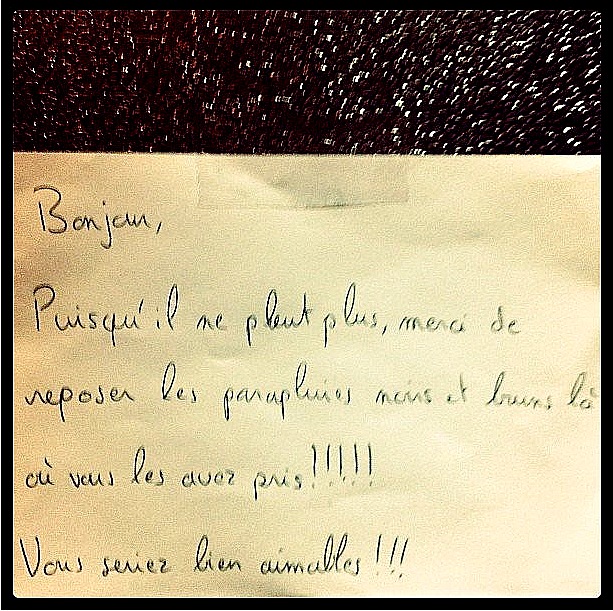 Bonjour,
Puisqu'il ne pleut plus, merci de
reposer les parapluies noirs et bruns là
où vous les avez pris!!!!!
Vous seriez bien aimables!!!